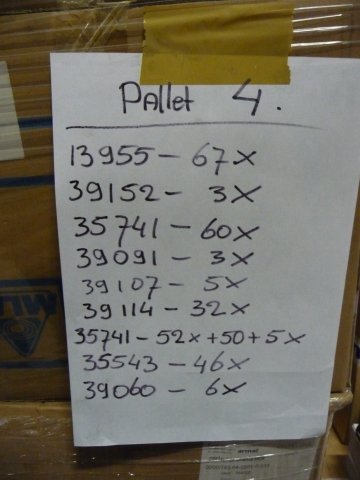 Pallet 4.
13955 - 67x
39152 - 3x
35741 - 60x
39091 - 3x
39107 - 5x
39114 - 32x
35741 - 52x + 50 + 5x
35543 - 46x
39060 - 6x